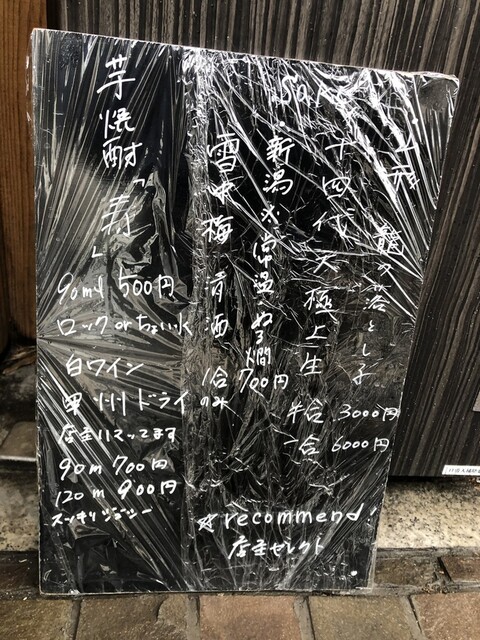 Sake
・山形
龍の落とし子
十四代 大極上生
半合 3000円
一合 6000円
・新潟 ※常温 ぬる燗
雪中梅 清酒
1合 700円
のみ
☆recommend!
店主セレクト
芋焼酎「寿」
90ml 500円
ロック or ちょい水
白ワイン
甲州ドライ
店主ハマってます
90m 700円
120m 900円
スッキリジューシー